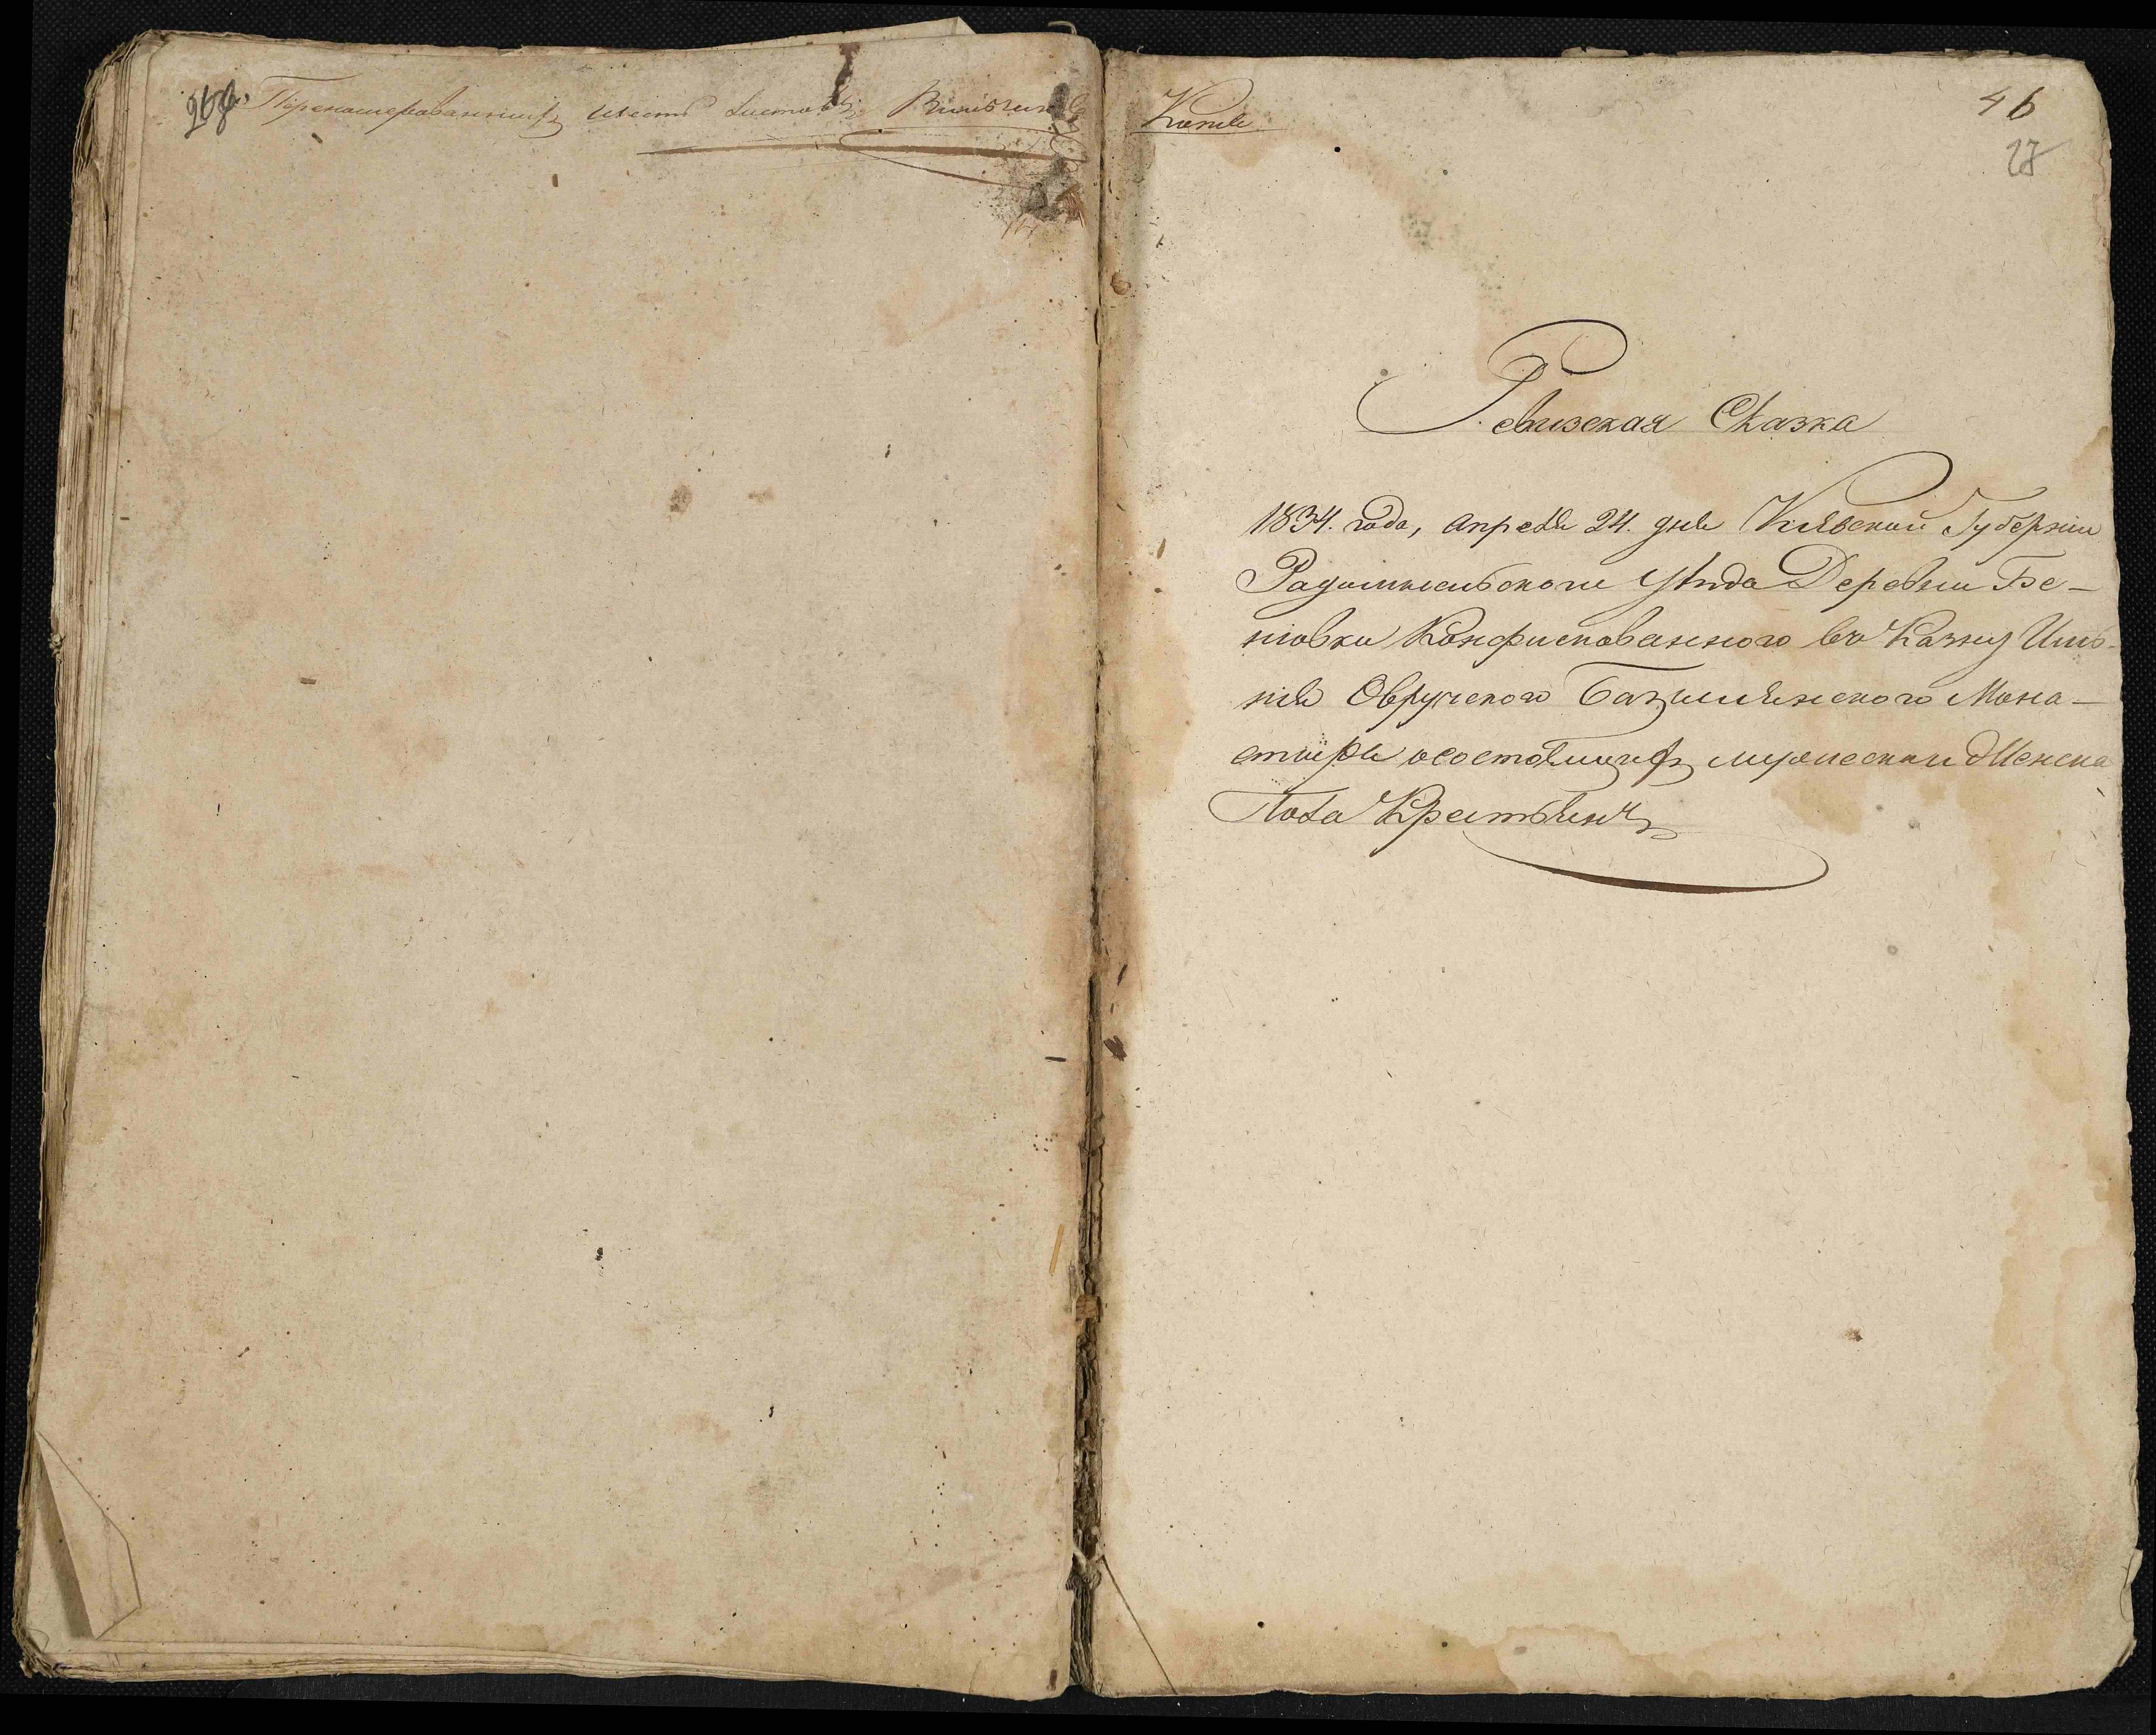 Перенамерованныхъ шесть листовъ
Копія
46
27
Ревизская Сказка
1834. года, апреля 24. дня Кіевской Губерніи
Радомысльского уѣзда Деревни Бе-
ніовки Конфискованного въ Казну Имѣ-
нія Овручского Базиліянского Мона-
стыря осостоящихъ мужеска и Женска
Пола Крестьянъ